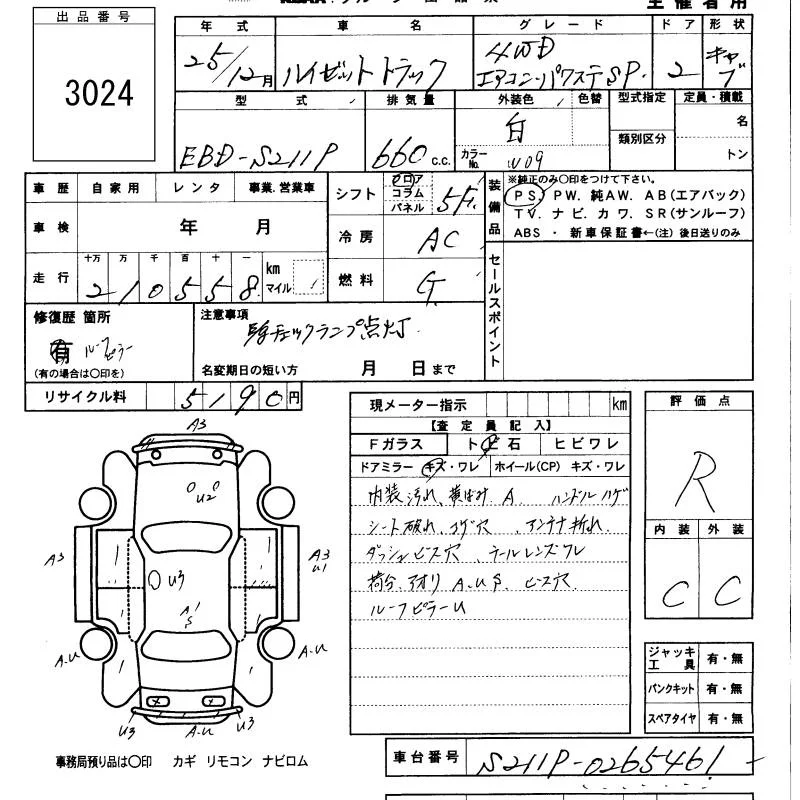 主催者用
出品番号
3024
年式 車名 グレード ドア 形状
25/12月 ハイゼットトラック 4WD エアコン・パワステSP. 2 キャブ
型式 排気量 外装色 色替 型式指定 定員・積載
EBD-S211P 660 C.C. 白 カラーNo. W09 類別区分 名
トン
車歴 自家用 レンタ 事業.営業車
車検 年 月
走行 十万 万 千 百 十 一
210558 km マイル
シフト フロア コラム パネル 5F
冷房 AC
燃料 G
装備品
※純正のみ〇印をつけて下さい。
PS. PW. 純AW. AB(エアバック)
TV. ナビ. カワ. SR(サンルーフ)
ABS ・ 新車保証書←(注)後日送りのみ
セールスポイント
修復歴 箇所
有 ルーフピラー
(有の場合は〇印を)
注意事項
チェックランプ点灯
名変期日の短い方 月 日まで
リサイクル料 5190円
現メーター指示 km
【査定員記入】
Fガラス ト 石 ヒビワレ
ドアミラー キズ・ワレ ホイール(CP) キズ・ワレ
内装汚れ、黄ばみ A ハンドルハゲ
シート破れ、コゲ穴 、アンテナ折れ
ダッシュビス穴、テールレンズワレ
荷台、アオリ A.U.S. ビス穴
ルーフピラーU
評価点
R
内装 外装
C C
ジャッキ工具 有・無
パンクキット 有・無
スペアタイヤ 有・無
A3
U2
A3
U3
A1
S
A3
U1
A.U
A.U
U3
A.U
U3
事務局預り品は〇印 カギ リモコン ナビロム
車台番号 S211P-0265461